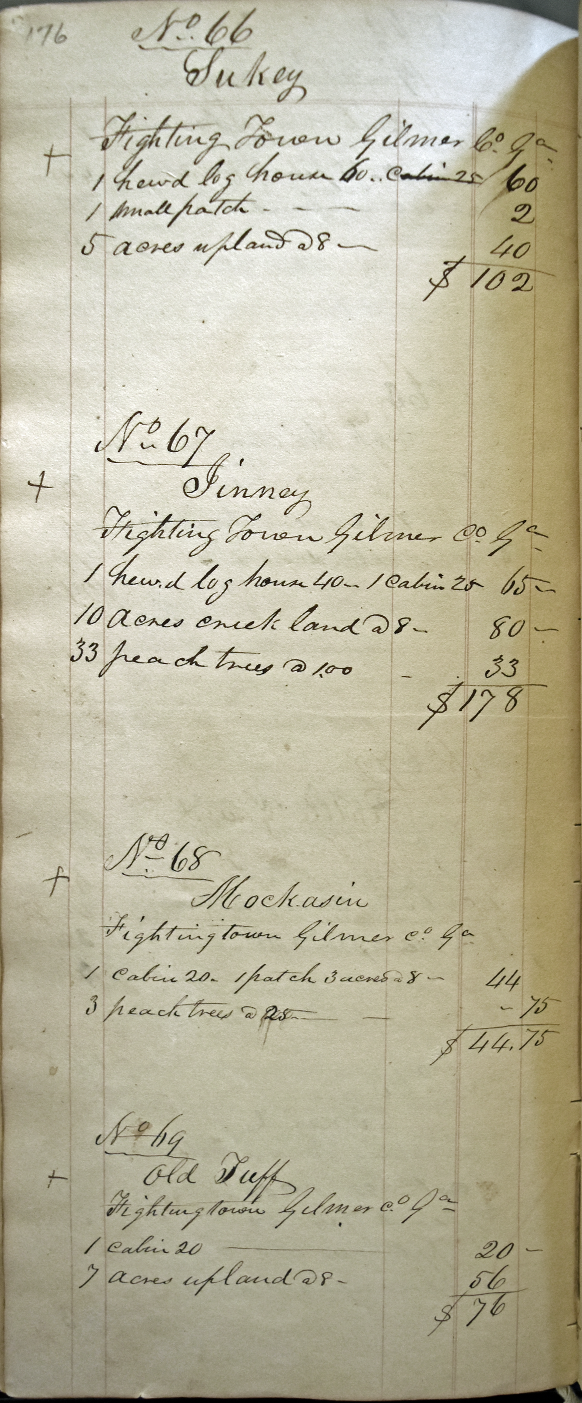 176
No. 66
Sukey
+ Fighting Town Gilmer Co. Ga
1 hewd log house 60.. cabin 25 60
1 small patch - — — 2
5 acres upland @ 8 — 40
$ 102
No. 67
+ Jinney
Fighting Town Gilmer Co. Ga
1 hewd log house 40 - 1 cabin 25 65 -
10 acres creek land @ 8 - 80 -
33 peach trees @ 1.00 - 33
$ 178
No. 68
+ Mockasin
Fightingtown Gilmer co. Ga
1 cabin 20 - 1 patch 3 acres @ 8 - 44
3 peach trees @ 25 — - - 75
$ 44.75
No. 69
Old Tuff
+ Fightingtown Gilmer co. Ga
1 cabin 20 — 20 -
7 acres upland @ 8 - 56
$ 76